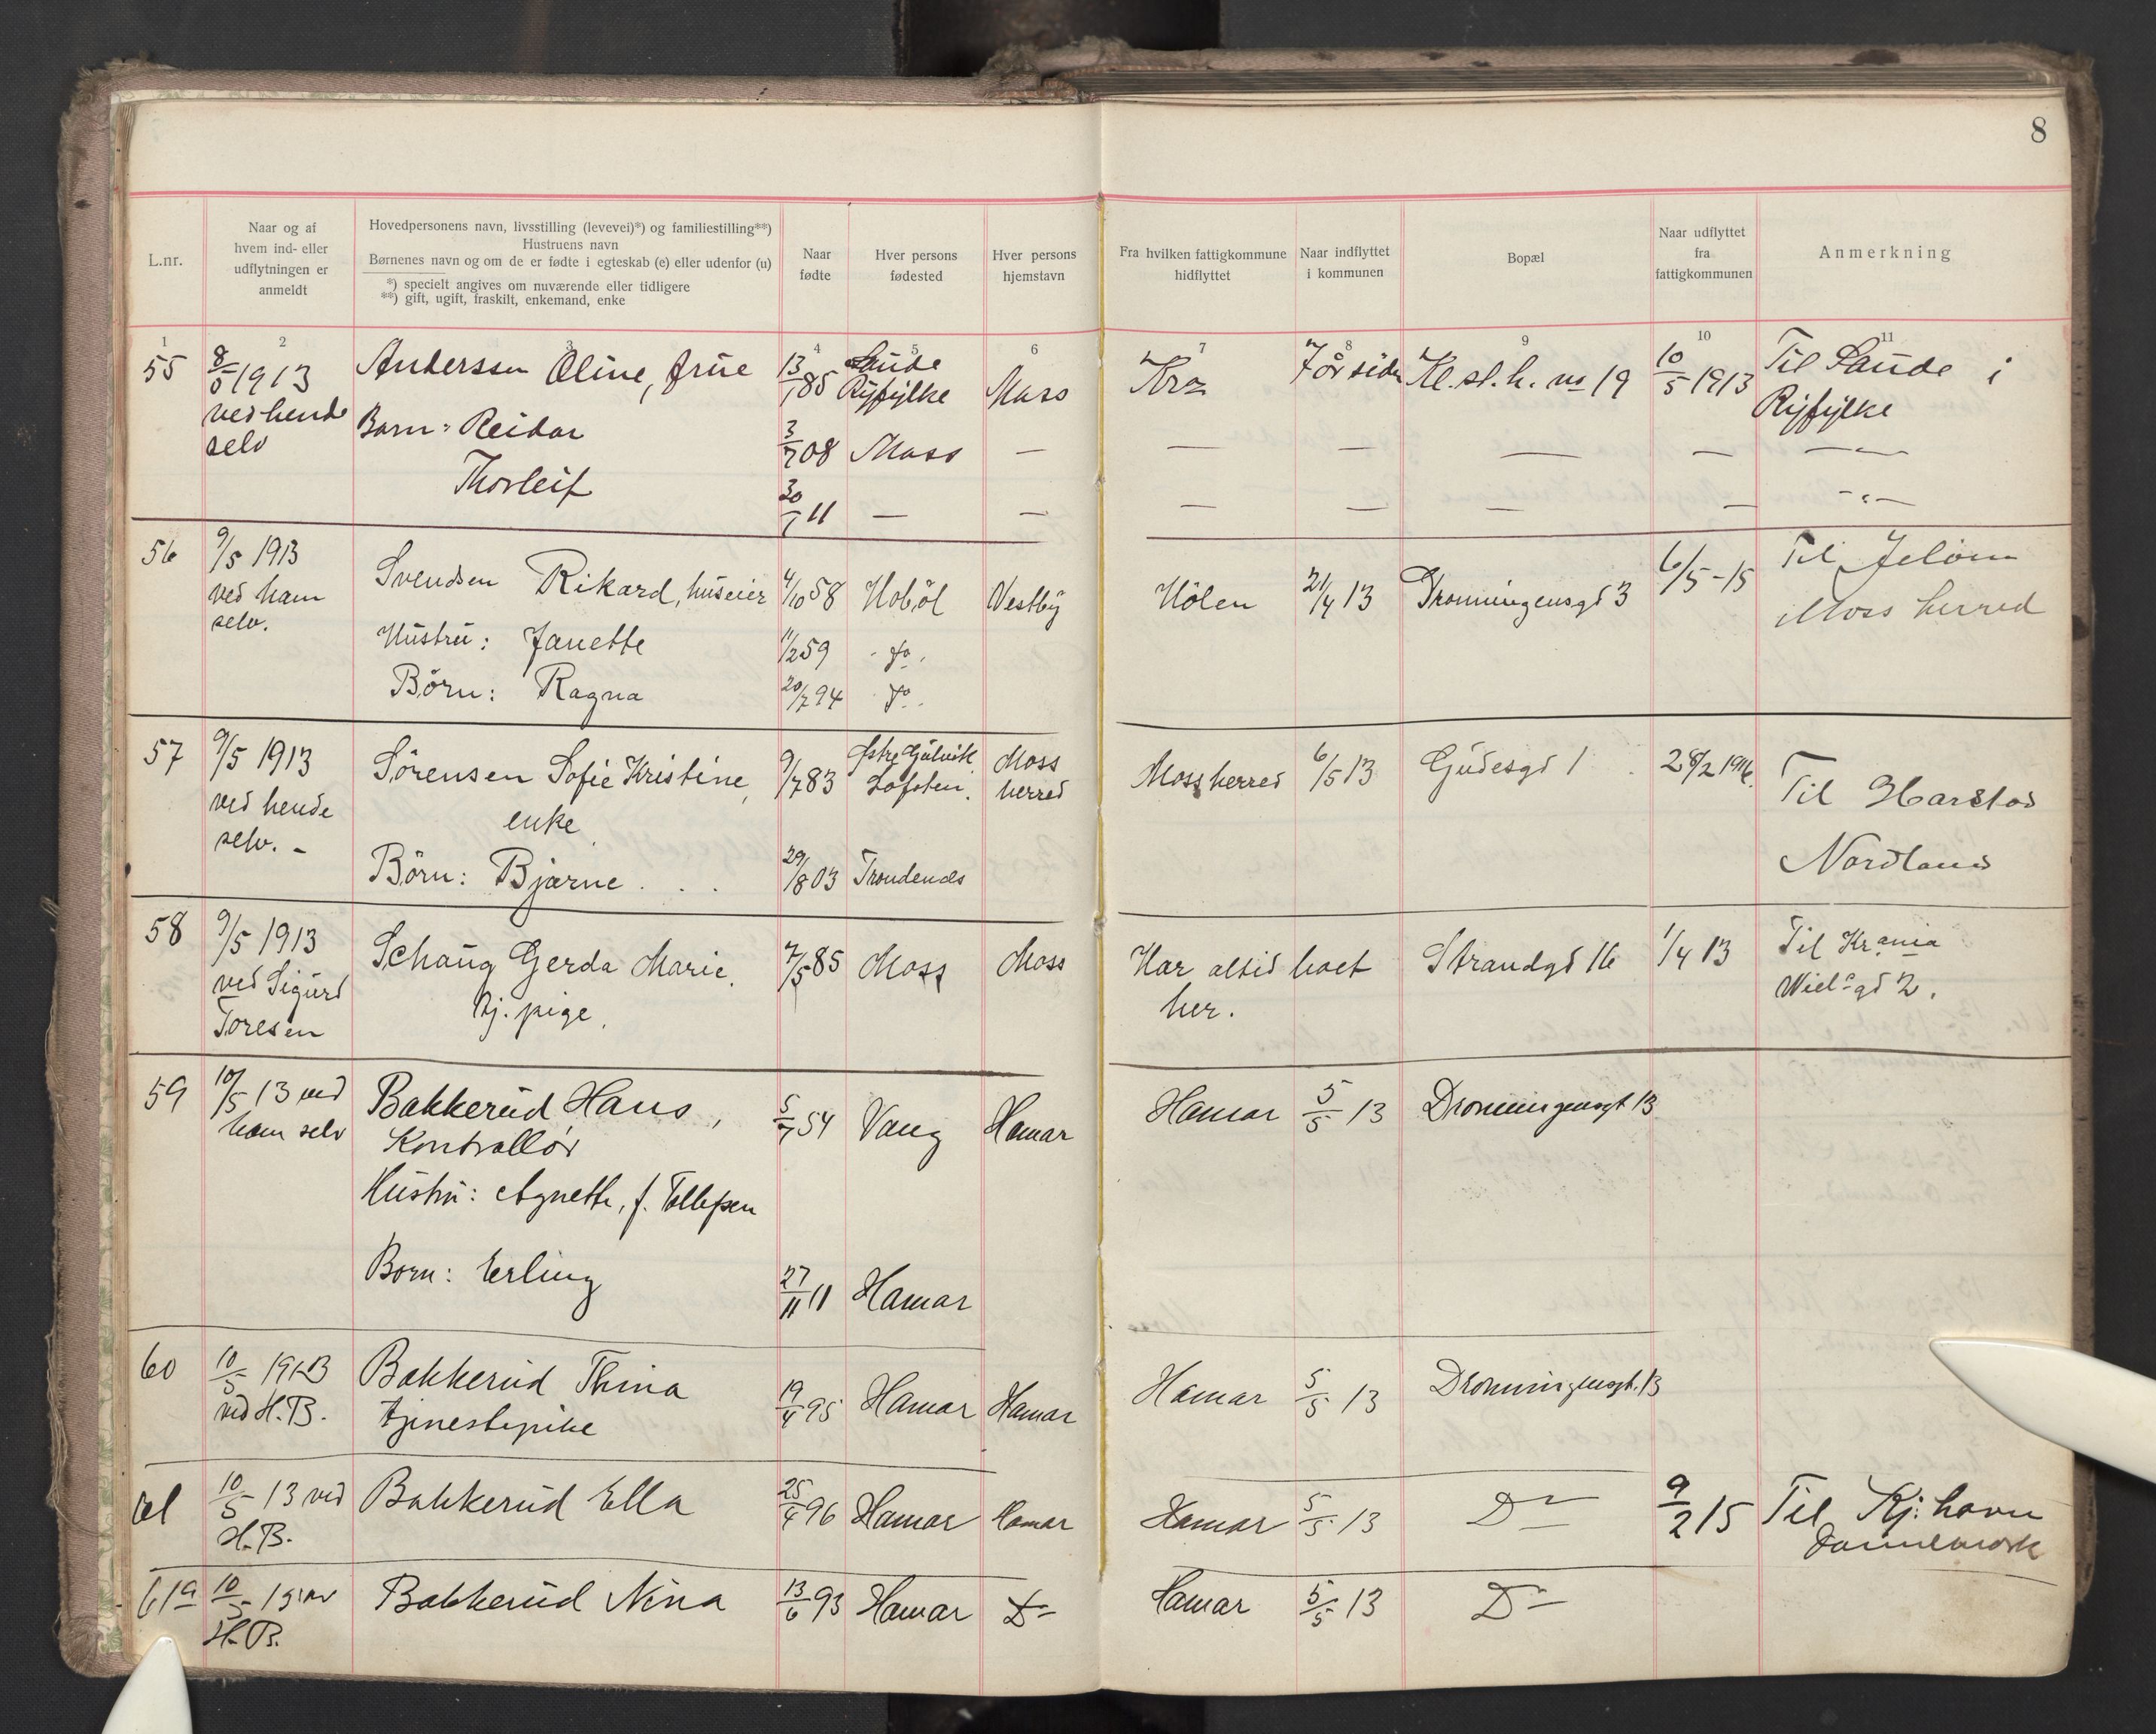 8
L.nr.
Naar og af
hvem ind- eller
udflytningen er
anmeldt
Hovedpersonens navn, livsstilling (levevei)*) og familiestilling**)
Hustruens navn
Børnenes navn og om de er fødte i egteskab (e) eller udenfor (u)
*) specielt angives om nuværende eller tidligere
**) gift, ugift, fraskilt, enkemand, enke
Naar
fødte
Hver persons
fødested
Hver persons
hjemstavn
Fra hvilken fattigkommune
hidflyttet
Naar indflyttet
i kommunen
Bopæl
Naar udflyttet
fra
fattigkommunen
Anmerkning
1 2 3 4 5 6 7 8 9 10 11
55 8/5 1913 Anderssen Oline, frue 13/1 85 Saude Moss Kra 7 år siden Kl.st.h. no 19 10/5 1913 Til Saude i
ved hende Ryfylke Ryfylke
selv Barn: Reidar 3/7 08 Moss — — — — — —"—
Thorleif 30/1 11 — — — — — — -"-
56 9/5 1913 Svendsen Rikard, huseier 4/10 58 Hobøl Vestby Hölen 21/4 13 Dronningensgd 3 6/5-15 Til Jelöen
ved ham Moss herred
selv. Hustru: Janette 11/2 59 do.
Börn: Ragna 20/7 94 do.
57 9/5 1913 Sörensen Sofie Kristine, 9/7 83 Lofoten. Moss herred Moss herred 6/5 13 Gudesgd 1 28/2 1916. Til Harstad
ved hende enke Nordland
selv. - Börn: Bjarne . . . 29/8 03 Trondenæs
58 9/5 1913 Schaug Gerda Marie, 7/5 85 Moss Moss Har altid boet Strandgd 16 1/4 13 Til Krania
ved Sigurd tj. pige. her. gd 2.
Toresen
59 10/5 13 ved Bakkerud Hans, 5/7 54 Vang Hamar Hamar 5/5 13 Dronningensgt 13
ham selv Kontrollør
Hustru: Agnethe, f. Tollefsen
Born: Erling 27/11 11 Hamar
60 10/5 1913 Bakkerud Thina 19/4 95 Hamar Hamar Hamar 5/5 13 Dronningensgt. 13
ved H.B. tjenestepike
61 10/5 13 ved Bakkerud Ella 25/4 96 Hamar Hamar Hamar 5/5 13 Do 9/2 15 Til Kj:havn
H.B. Dannemark
61a 10/5 13 ved Bakkerud Nina 13/6 93 Hamar Do Hamar 5/5 13 Do
H.B.